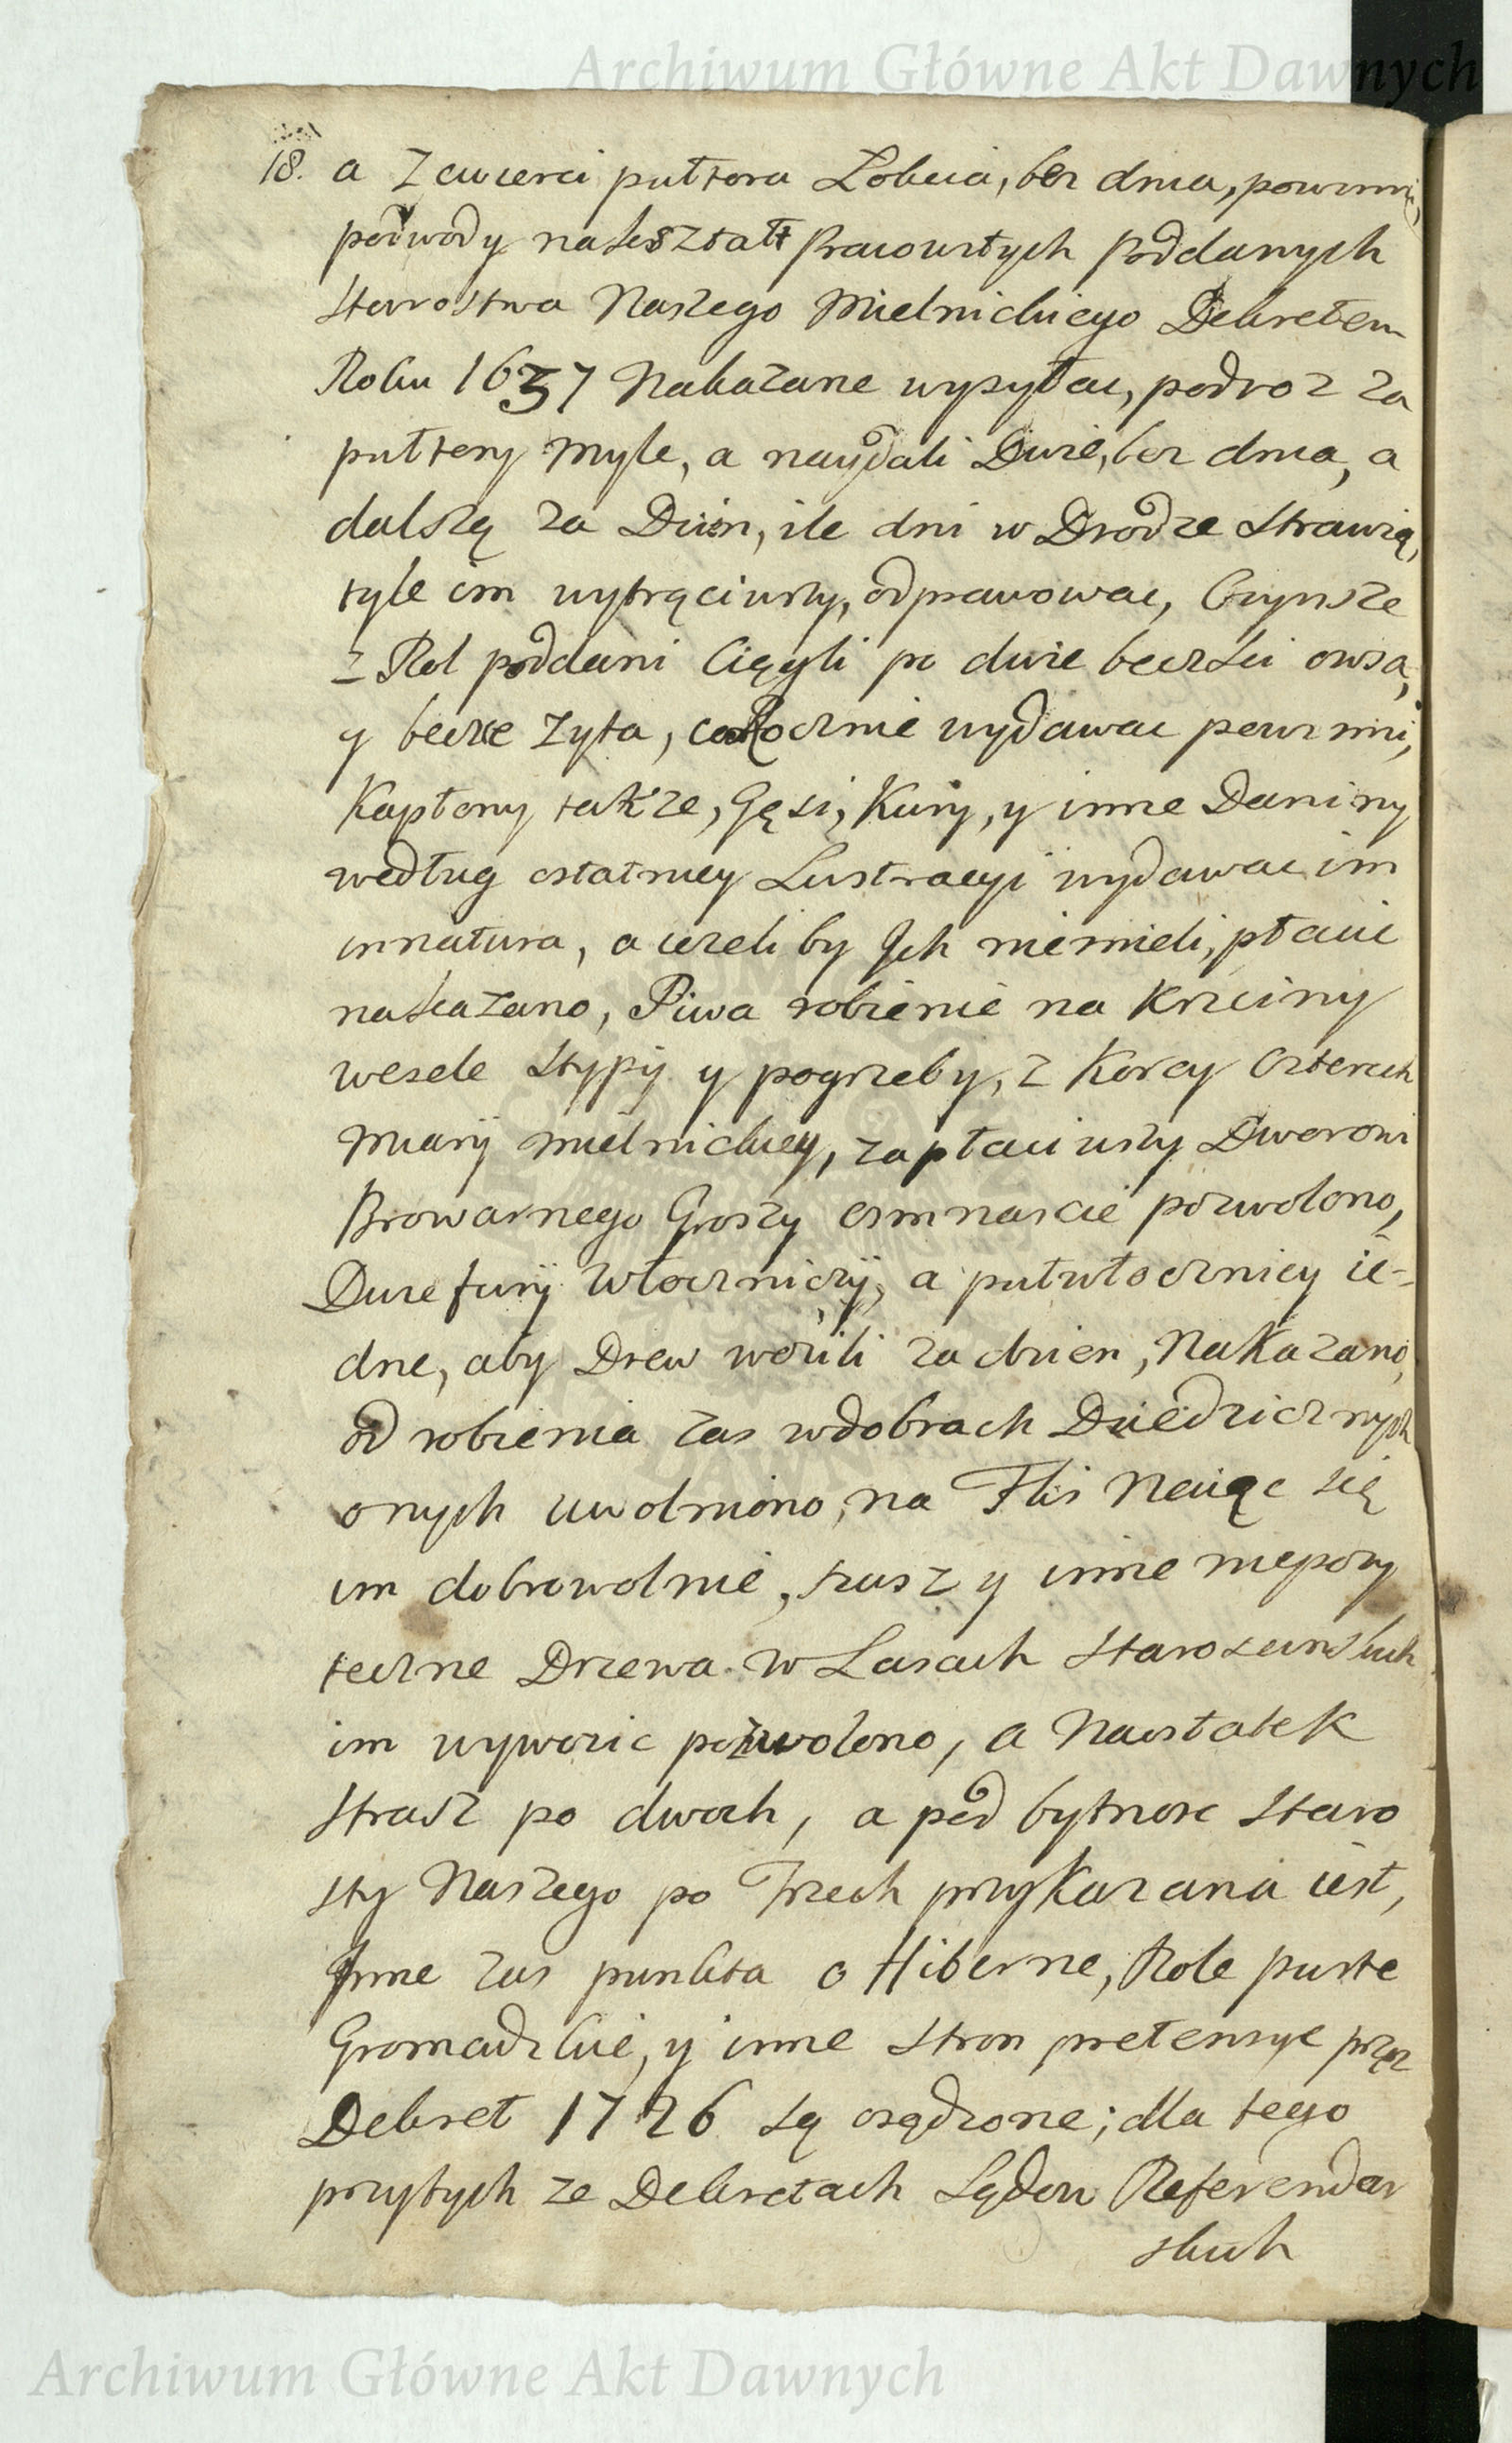 Archiwum Główne Akt Dawnych
18. a z cwierci pułtora Łokcia, bez dnia, powinni,
podwody nakształt Pracowitych Poddanych
Starostwa Naszego Mielnickiego Dekretem
Roku 1637 Nakazane wysyłac, podroz za
pułtory myle, a naydali Dwie, bez dnia, a
dalszą za Dzien, ile dni w Drodze strawią,
tyle im wytrąciwszy, odprawowac, Czynsze
z Rol poddani Ciągli po dwie beczki owsa,
y beczce zyta, corocznie wydawac powinni,
Kapłony takze, Gęsi, Kury, y inne Daniny
według ostatniey Lustracyi wydawac im
innatura, a iezeliby Jch niemieli, płacic
nakazano, Piwa robienie na Krzciny
wesele stypy y pogrzeby, z Korcy czterech
Miary Mielnickiey, zapłaciwszy Dworowi
Browarnego Groszy osmnascie pozwolono,
Dwie fury Włoczniczy, a pułwłocznicy ie-
dne, aby Drew wozili za dzien, Nakazano,
od robienia zas wdobrach Dziedzicznych
onych uwolniono, na Flis Naiąc się
im dobrowolnie, susz y inne niepozy
teczne Drzewa w Lasach Starosciнskich
im wywozic pozwolono, a Naostatek
straz po dwoch, a pod bytnosc Staro
sty Naszego po Trzech przykazana iest,
Jnne zas punkta o Hiberne, Role puste
Gromadzkie, y inne stron pretensye przez
Dekret 1726 są osądzone; dla tego
przytych ze Dekretach Sądow Referendar
skich
Archiwum Główne Akt Dawnych